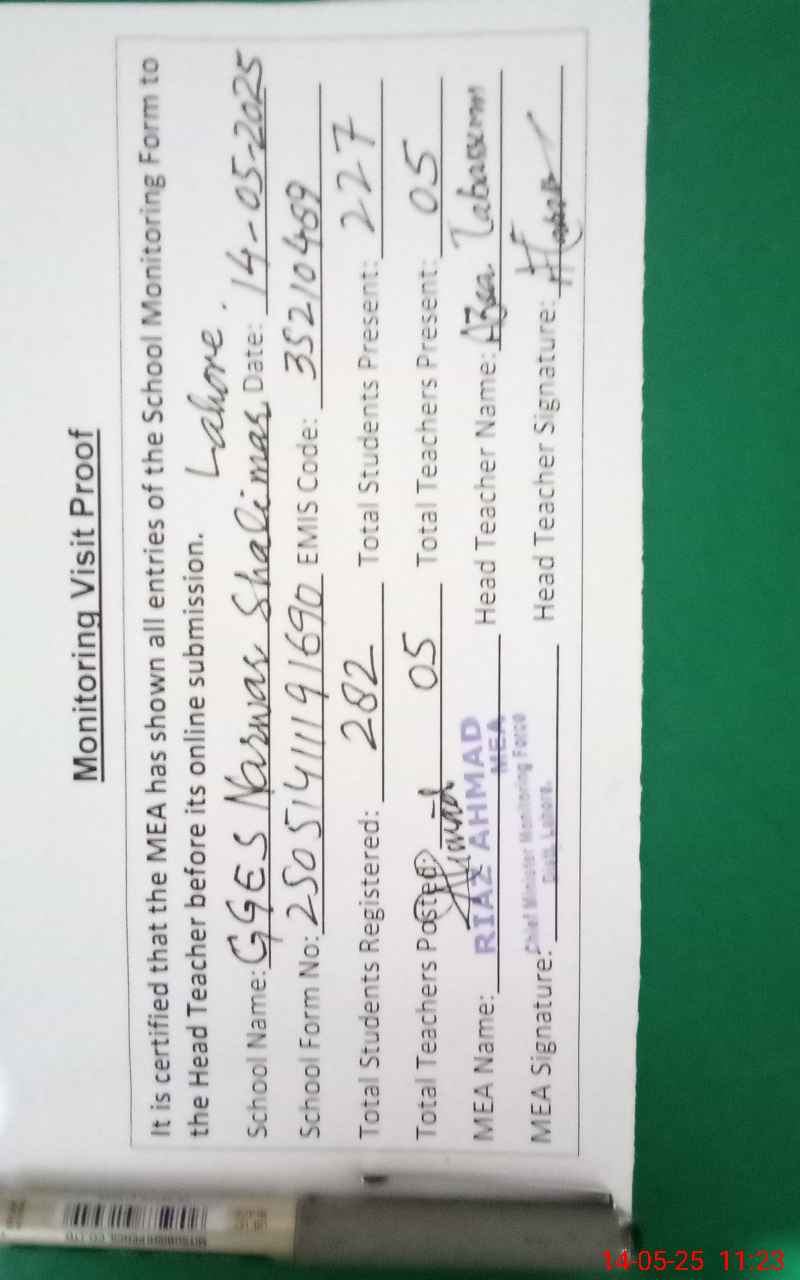 Monitoring Visit Proof
It is certified that the MEA has shown all entries of the School Monitoring Form to
the Head Teacher before its online submission.
Lahore.
School Name: GGES Narwar Shalimar Date: 14-05-2025
School Form No: 250514111191690 EMIS Code: 35210469
Total Students Registered: 282 Total Students Present: 227
Total Teachers Posted: 05 Total Teachers Present: 05
MEA Name: RIAZ AHMAD Head Teacher Name: Azra Tabassum
MEA
Chief Minister Monitoring Force
MEA Signature: Distt. Lahore. Head Teacher Signature:
MITSUBISHI PENCIL CO., LTD
14-05-25 11:23